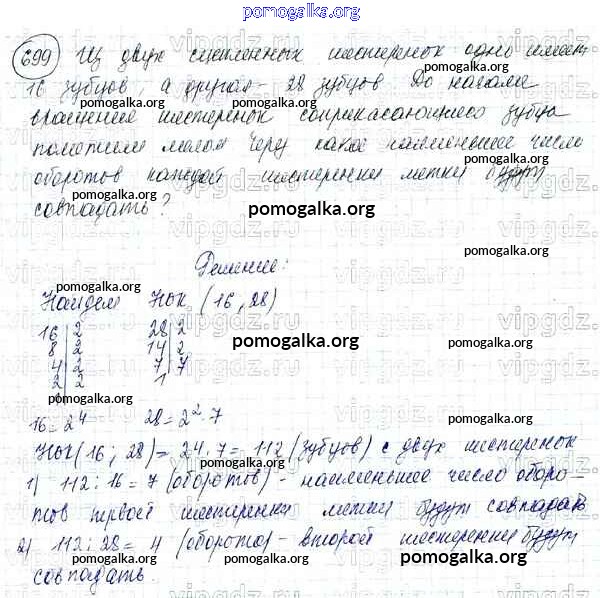 pomogalka.org
699 Из двух сцепленных шестеренок одна имеет
16 зубцов, а другая - 28 зубцов До начала
вращения шестеренок соприкасающиеся зубцы
пометили мелом Через какое наименьшее число
оборотов каждой шестеренки метки будут
совпадать?
pomogalka.org
Решение:
Найдем НОК (16, 28)
16 2 28 2
8 2 14 2
4 2 7 7
2 2 1
16 = 2^4 28 = 2^2 · 7
НОК (16; 28) = 2^4 · 7 = 112 (зубцов) с двух шестеренок
1) 112 : 16 = 7 (оборотов) - наименьшее число оборо-
тов первой шестеренки метки будут совпадать
2) 112 : 28 = 4 (оборота) - второй шестеренки будут
совпадать.
pomogalka.org